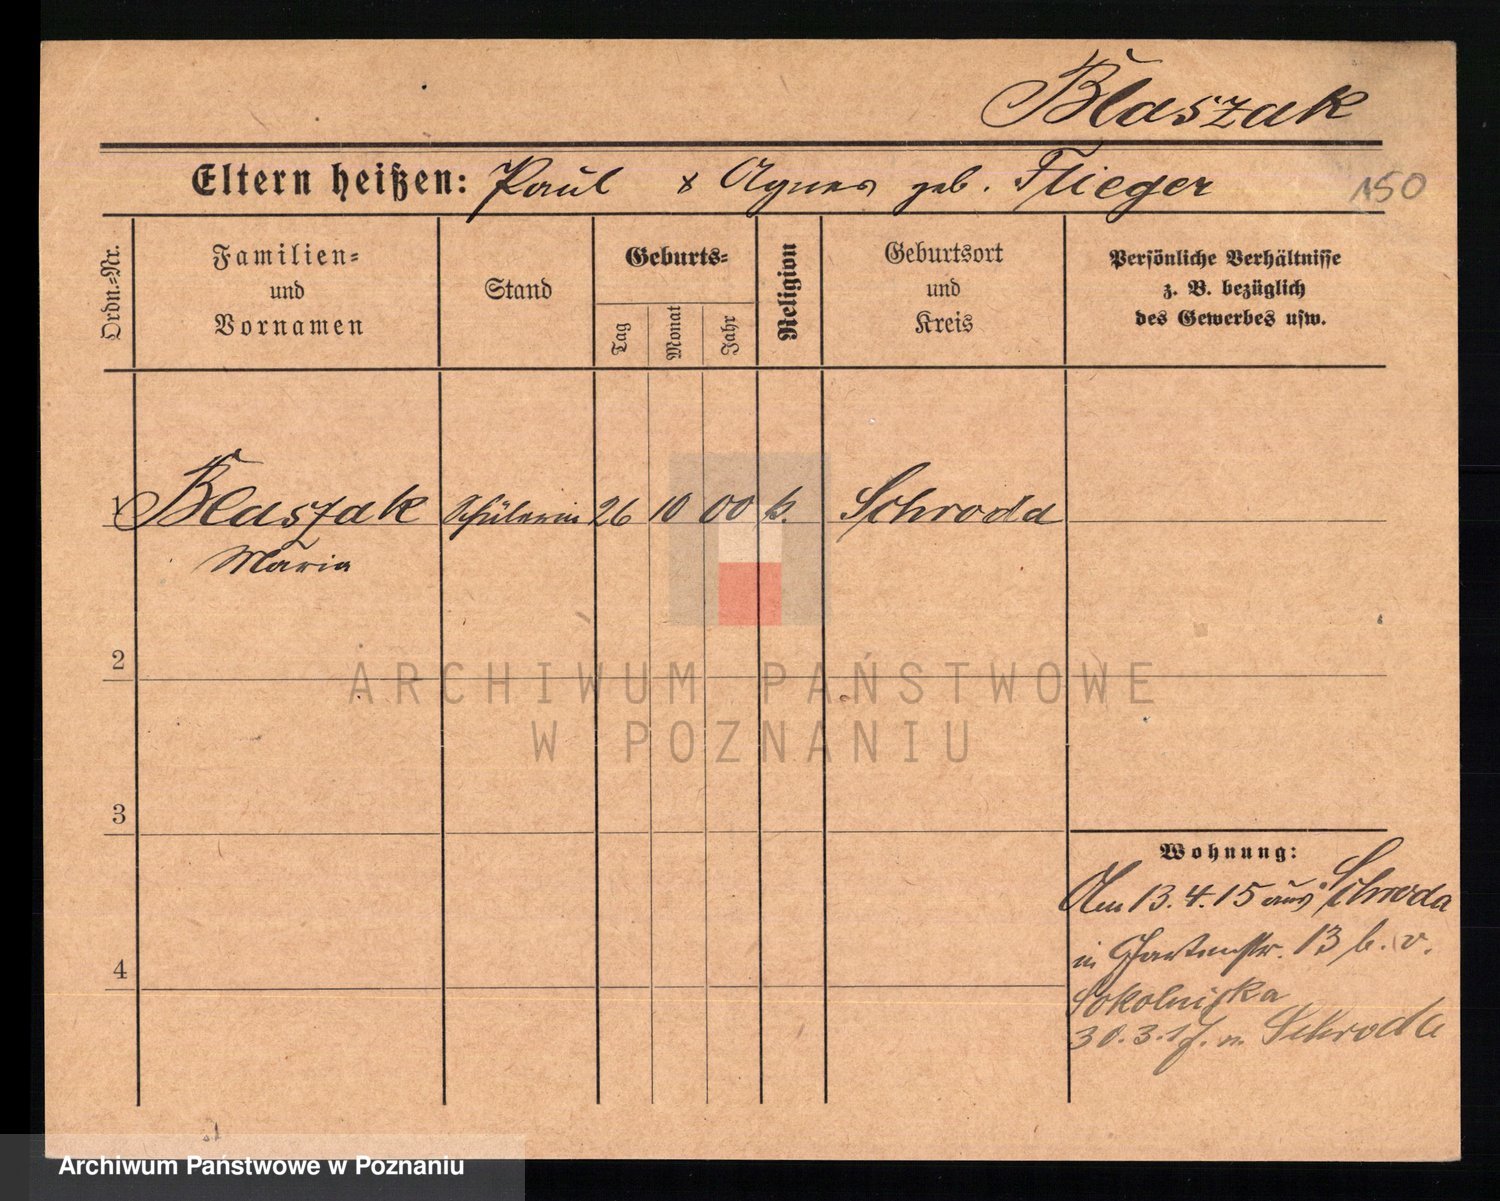 Blaszak
Eltern heißen: Paul & Agnes geb. Flieger
150
Ordn.=Nr.
Familien=
und
Vornamen
Stand
Geburts=
Tag
Monat
Jahr
Religion
Geburtsort
und
Kreis
Persönliche Verhältnisse
z. B. bezüglich
des Gewerbes usw.
1 Blaszak Schülerin 26 10 00 k. Schroda
Maria
2
3
4
Wohnung:
Am 13.4.15 aus Schroda
in Gartenstr. 13 b. v.
Sokolniska
30.3.17. n. Schroda
ARCHIWUM PAŃSTWOWE
W POZNANIU
Archiwum Państwowe w Poznaniu